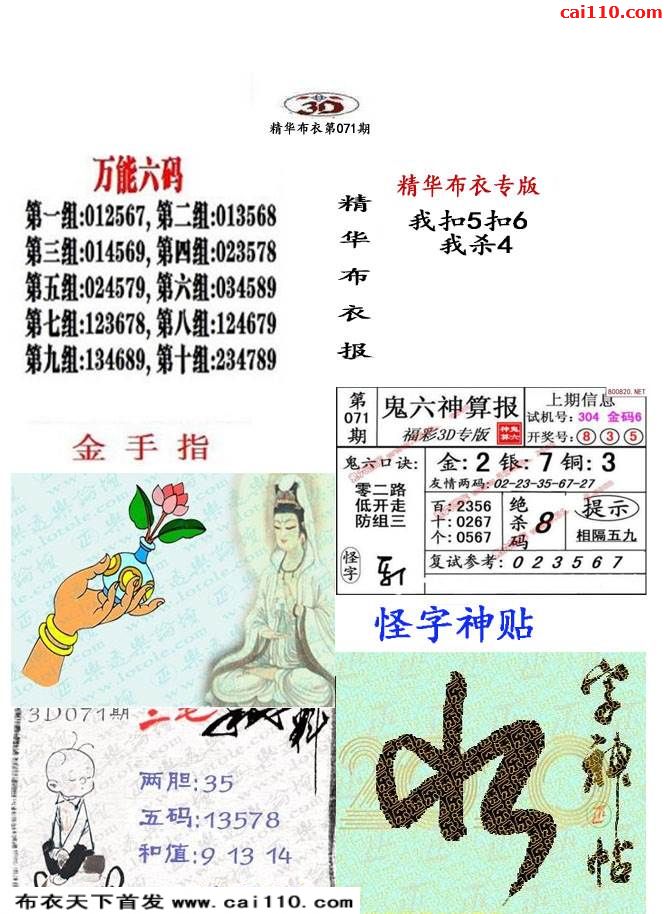 cai110.com
3D
精华布衣第071期
万能六码
第一组:012567, 第二组:013568
第三组:014569, 第四组:023578
第五组:024579, 第六组:034589
第七组:123678, 第八组:124679
第九组:134689, 第十组:234789
精华布衣报
精华布衣专版
我扣5扣6
我杀4
金手指
第071期
鬼六神算报
福彩3D专版
上期信息
800820.NET
试机号: 304 金码6
开奖号: 8 3 5
鬼六口诀:
零二路
低开走
防组三
金: 2 银: 7 铜: 3
友情两码: 02-23-35-67-27
百: 2356
十: 0267
个: 0567
绝杀码 8
提示
相隔五九
怪字
复试参考: 0 2 3 5 6 7
怪字神贴
3D071期
两胆:35
五码:13578
和值:9 13 14
字神帖
布衣天下首发 www.cai110.com